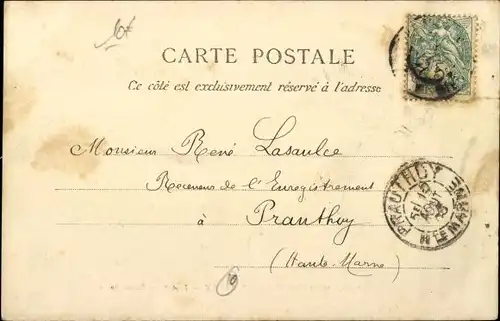 10f
CARTE POSTALE
Ce côté est exclusivement réservé à l'adresse
Monsieur René Lasaulce
Receveur de l'Enregistrement
à Prauthoy
(Haute-Marne)
PRAUTHOY
HTE MARNE